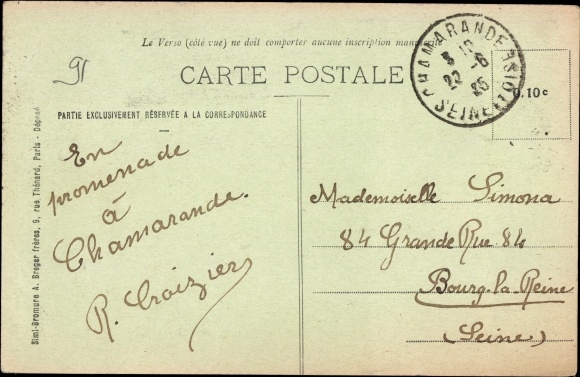 Le Verso (côté vue) ne doit comporter aucune inscription manuscrite
91
CARTE POSTALE
CHAMARANDE
22 -6
25
SEINE ET OISE
0.10c
PARTIE EXCLUSIVEMENT RÉSERVÉE A LA CORRESPONDANCE
En
promenade
à
Chamarande.
R. Croizier
Mademoiselle Simona
84 Grande Rue 84
Bourg-la-Reine
(Seine)
Simi-Bromure A. Breger frères, 9, rue Thénard, Paris - Déposé